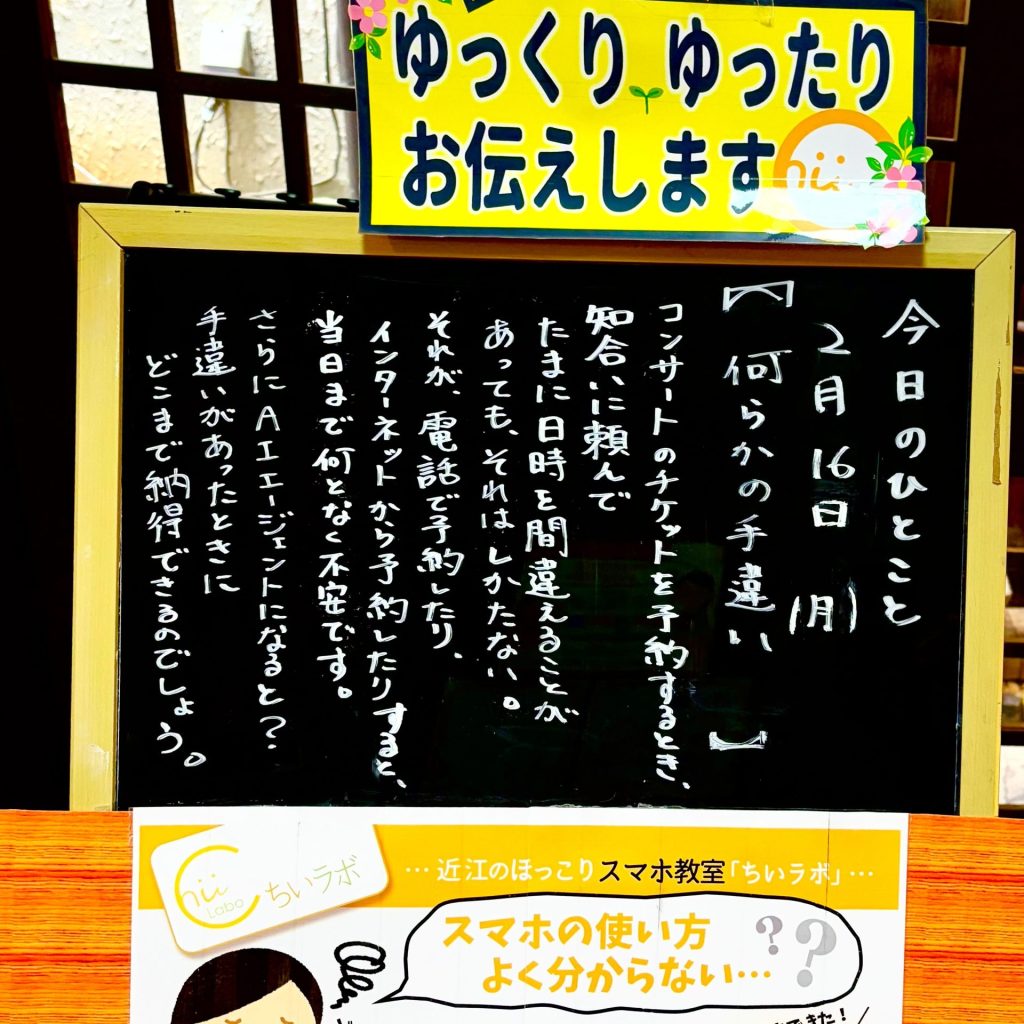 ゆっくり ゆったり
お伝えします
hii
今日のひとこと
2月16日(月)
【何らかの手違い】
コンサートのチケットを予約するとき、
知合いに頼んで
たまに日時を間違えることが
あっても、それはしかたない。
それが、電話で予約したり、
インターネットから予約したりすると、
当日まで何となく不安です。
さらにAIエージェントになると?
手違いがあったときに
どこまで納得できるのでしょう。
Chii Labo ちいラボ
…近江のほっこりスマホ教室「ちいラボ」…
スマホの使い方
よく分からない…??
できた!